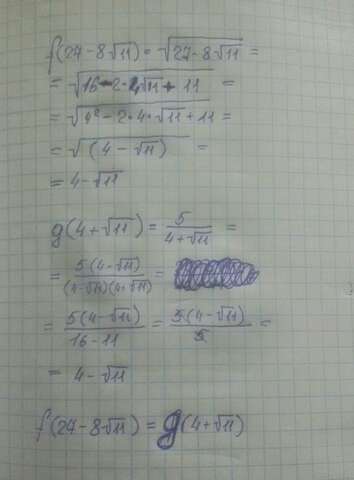 f(27-8√11) = √(27-8√11) =
= √(16-2·4√11+11) =
= √(4²-2·4·√11+11) =
= √((4-√11)) =
= 4-√11
g(4+√11) = 5/(4+√11) =
= 5(4-√11)/((4-√11)(4+√11)) =
= 5(4-√11)/(16-11) = 5(4-√11)/5 =
= 4-√11
f(27-8√11) = g(4+√11)